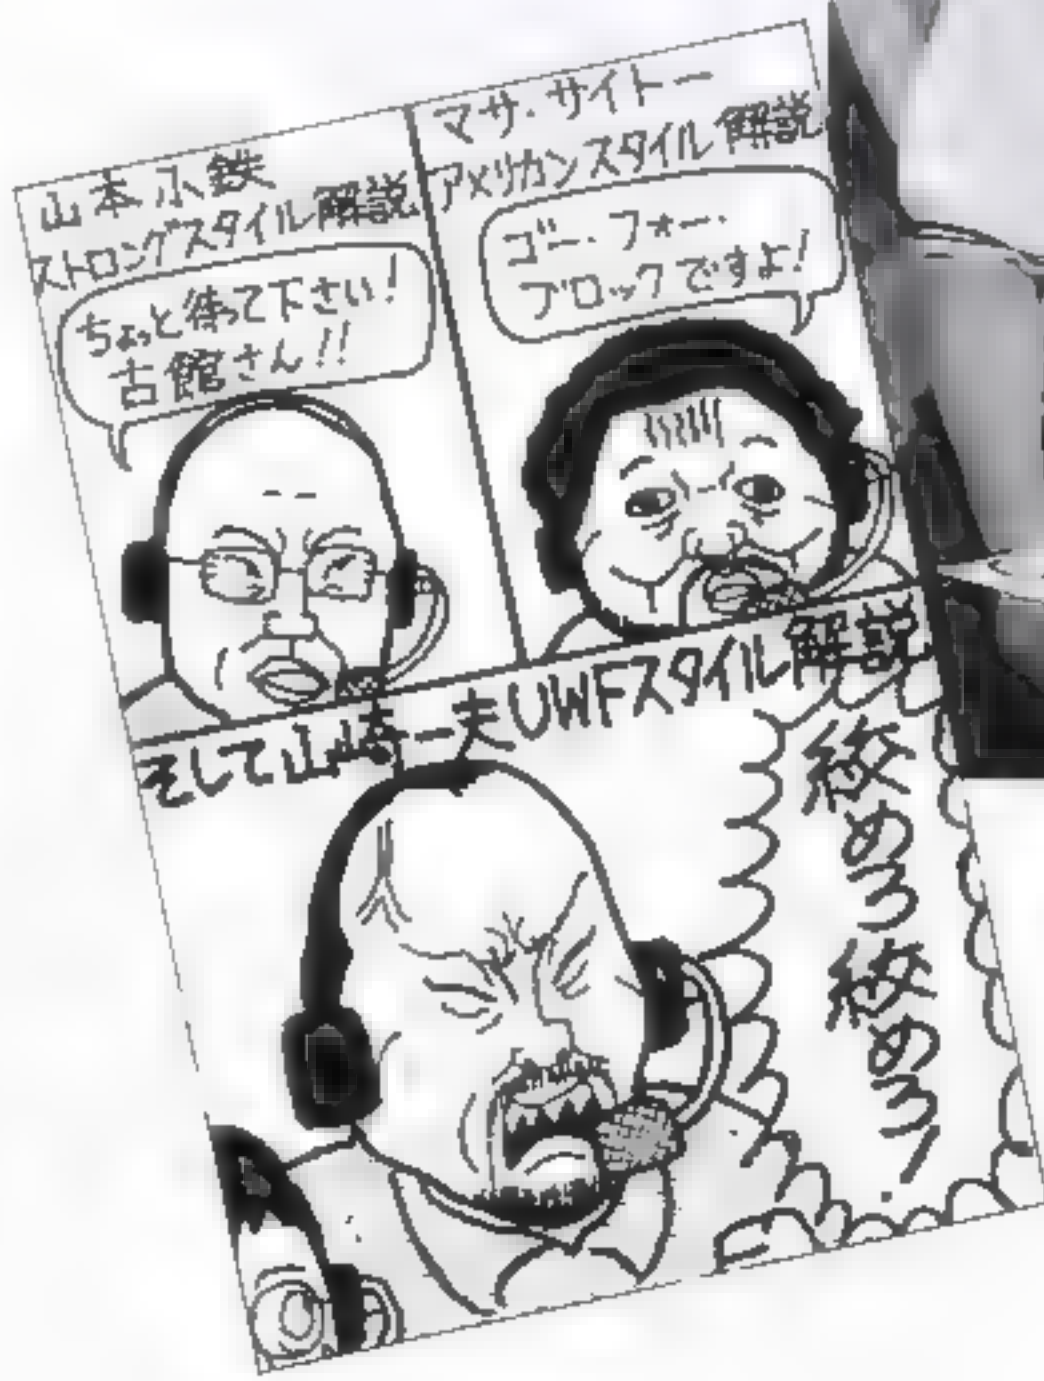 山本小鉄
ストロングスタイル解説
ちょっと待って下さい!
古館さん!!
マサ・サイトー
アメリカンスタイル解説
ゴー・フォー・
ブロックですよ!
そして山崎一夫UWFスタイル解説
絞めろ絞めろ!